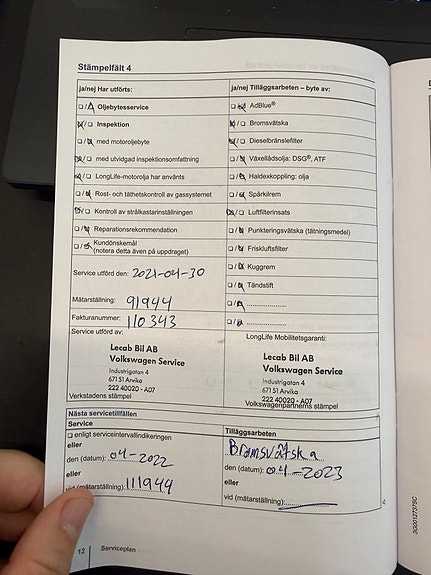 Stämpelfält 4
ja/nej Har utförts:
ja/nej Tilläggsarbeten – byte av:
Oljebytesservice
AdBlue®
Inspektion
Bromsvätska
med motoroljebyte
Dieselbränslefilter
med utvidgad inspektionsomfattning
Växellådsolja: DSG®, ATF
LongLife-motorolja har använts
Haldexkoppling: olja
Rost- och täthetskontroll av gassystemet
Spårkilrem
Kontroll av strålkastarinställningen
Luftfilterinsats
Reparationsrekommendation
Punkteringsvätska (tätningsmedel)
Kundönskemål
(notera detta även på uppdraget)
Friskluftsfilter
Kuggrem
Service utförd den: 2021-04-30
Tändstift
Mätarställning: 91944
Fakturanummer: 110343
Service utförd av:
LongLife Mobilitetsgaranti:
Lecab Bil AB
Volkswagen Service
Industrigatan 4
671 51 Arvika
222 40020 - A07
Verkstadens stämpel
Lecab Bil AB
Volkswagen Service
Industrigatan 4
671 51 Arvika
222 40020 - A07
Volkswagenpartnerns stämpel
Nästa servicetillfällen
Service
enligt serviceintervallindikeringen
eller
den (datum): 04-2022
eller
vid (mätarställning): 111944
Tilläggsarbeten
Bromsvätska
den (datum): 04-2023
eller
vid (mätarställning):
12
Serviceplan
3G0012737SC